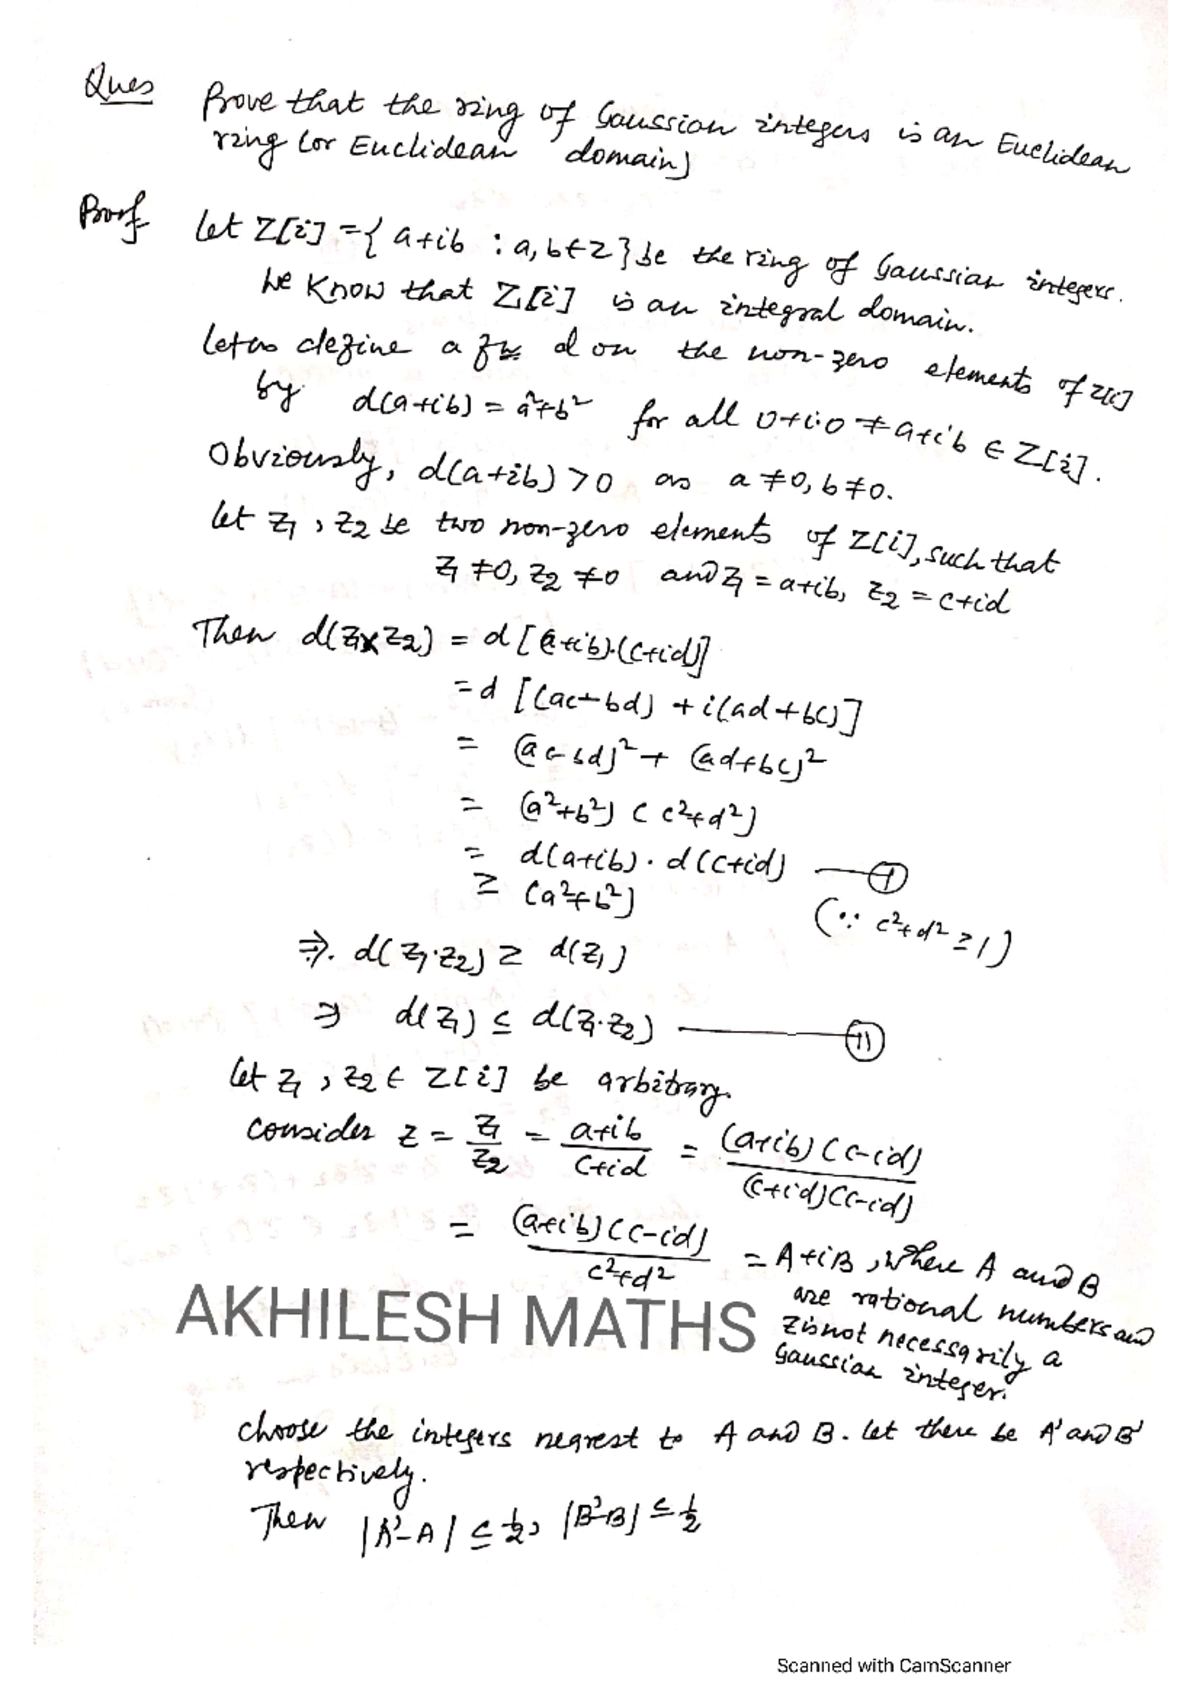 Ques Prove that the ring of Gaussian integers is an Euclidean
ring (or Euclidean domain)
Proof Let Z[i] = { a+ib : a, b ∈ Z } be the ring of Gaussian integers.
We know that Z[i] is an integral domain.
Let us define a fn d on the non-zero elements of Z[i]
by d(a+ib) = a²+b² for all 0+i.0 ≠ a+ib ∈ Z[i].
Obviously, d(a+ib) > 0 as a ≠ 0, b ≠ 0.
Let z₁, z₂ be two non-zero elements of Z[i], such that
z₁ ≠ 0, z₂ ≠ 0 and z₁ = a+ib, z₂ = c+id
Then d(z₁×z₂) = d [(a+ib).(c+id)]
= d [(ac-bd) + i(ad+bc)]
= (ac-bd)² + (ad+bc)²
= (a²+b²) (c²+d²)
= d(a+ib) . d(c+id) — (I)
≥ (a²+b²) (∵ c²+d² ≥ 1)
⇒. d(z₁.z₂) ≥ d(z₁)
⇒ d(z₁) ≤ d(z₁.z₂) — (II)
Let z₁, z₂ ∈ Z[i] be arbitrary.
Consider z = z₁/z₂ = (a+ib)/(c+id) = (a+ib)(c-id)/(c+id)(c-id)
= (a+ib)(c-id)/(c²+d²) = A+iB, where A and B
are rational numbers and
z is not necessarily a
Gaussian integer.
AKHILESH MATHS
choose the integers nearest to A and B. Let there be A' and B'
respectively.
Then |A'-A| ≤ 1/2, |B'-B| ≤ 1/2
Scanned with CamScanner